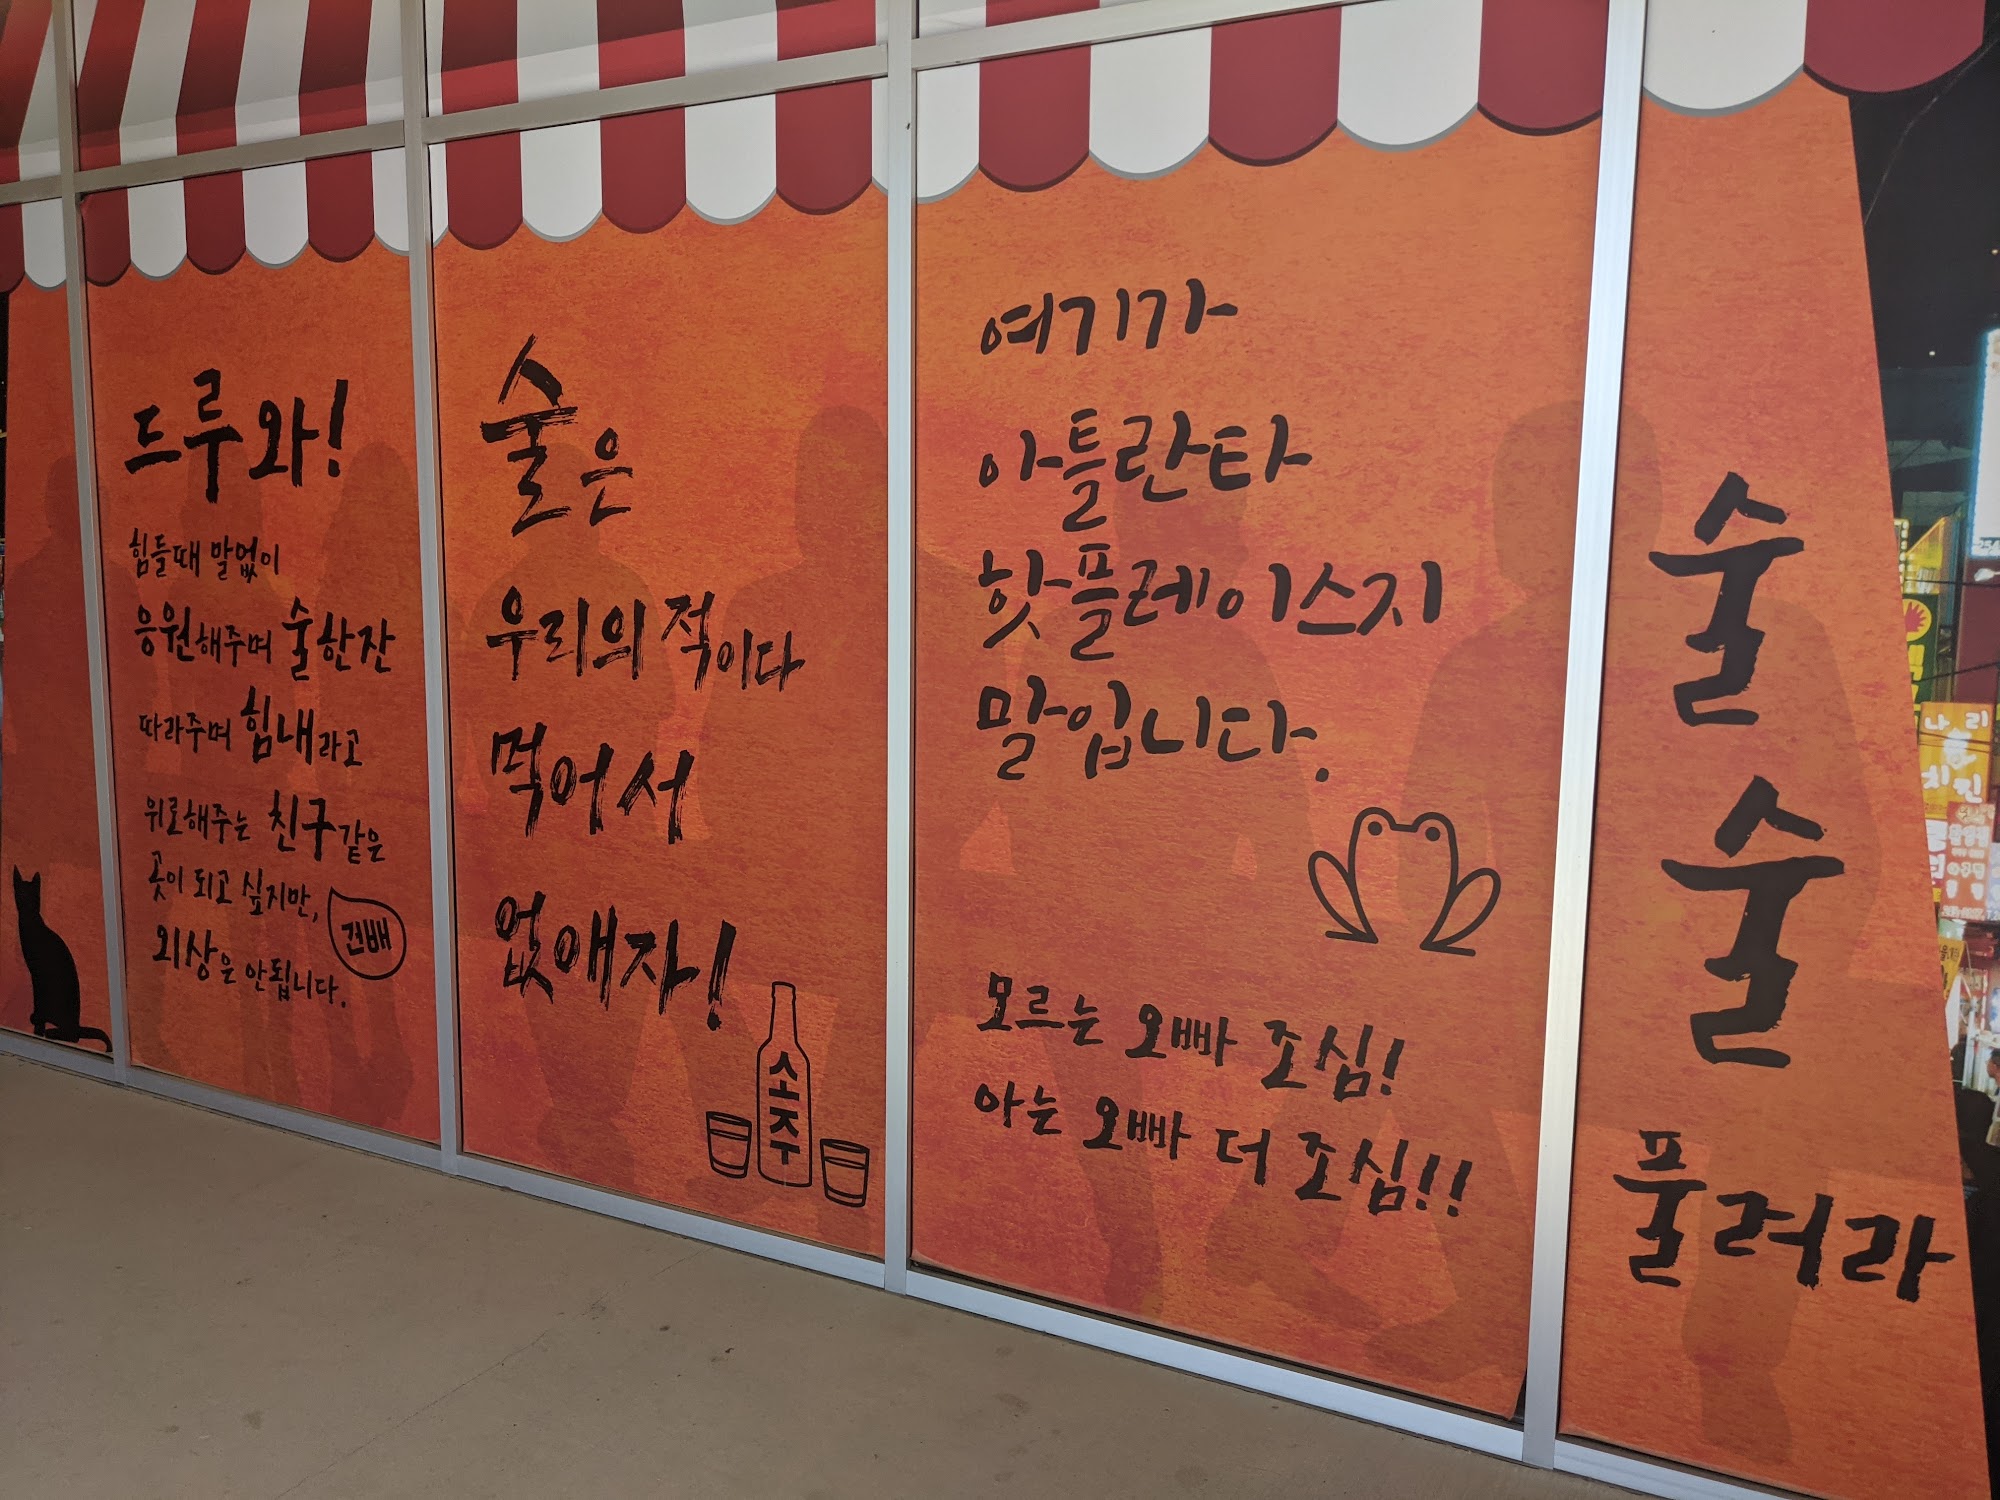 드루와!
힘들때 말없이
응원해주며 술한잔
따라주며 힘내라고
위로해주는 친구같은
곳이 되고 싶지만,
외상은 안됩니다.
건배
술은
우리의 적이다
먹어서
없애자!
소주
여기가
아틀란타
핫플레이스지
말입니다.
모르는 오빠 조심!
아는 오빠 더 조심!!
술
술
풀려라
나리
치킨